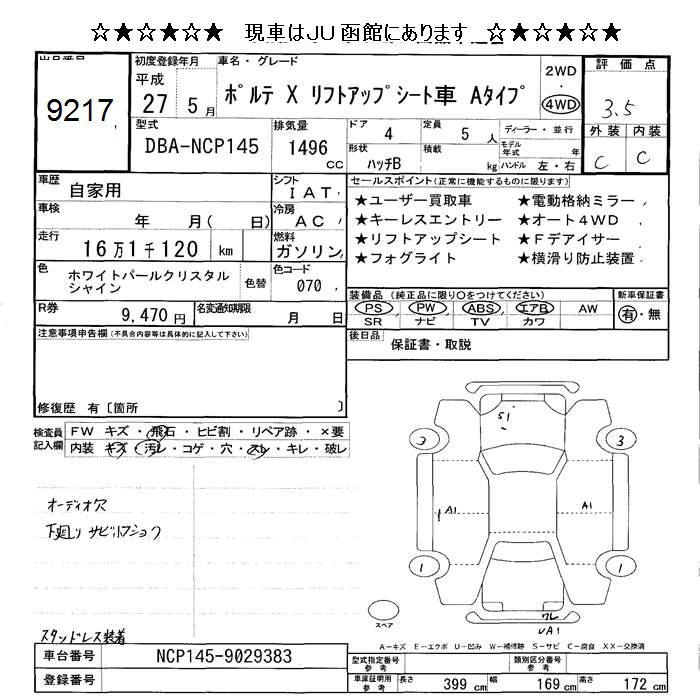 ☆★☆★☆★ 現車はJU函館にあります ☆★☆★☆★
評 価 点
3.5
外 装 内 装
C C
9217
初度登録年月
平成
27 5 月
車名・グレード
ポルテ X リフトアップシート車 Aタイプ
2WD
4WD
型式
DBA-NCP145
排気量
1496 CC
ドア 4
定員 5 人
ディーラー・並行
形状 ハッチB
積載 kg
モデル年式 年
ハンドル 左・右
車歴 自家用
シフト I A T
車検 年 月( 日)
冷房 A C
走行 16万1千120 km
燃料 ガソリン
色 ホワイトパールクリスタルシャイン
色替
色コード 070
R券 9,470 円
名変通知期限 月 日
セールスポイント(正常に機能するものに限ります)
★ユーザー買取車 ★電動格納ミラー
★キーレスエントリー ★オート4WD
★リフトアップシート ★Fデアイサー
★フォグライト ★横滑り防止装置
装備品 (純正品に限り○をつけてください)
新車保証書
PS PW ABS エアB AW
SR ナビ TV カワ
有・無
後日品 保証書・取説
注意事項申告欄(不具合内容等は具体的に記入して下さい)
修復歴 有〔箇所 〕
検査員記入欄
FW キズ・飛石・ヒビ割・リペア跡・×要
内装 キズ・汚レ・コゲ・穴・スレ・キレ・破レ
オーディオ穴
下廻り サビ
スタッドレス装着
S1
3 3
A1 A1
1 1
スペア
ワレ
UA1
A−キズ E−エクボ U−凹み W−補修跡 S−サビ C−腐食 XX−交換済
車台番号 NCP145-9029383
登録番号
型式指定番号 参考
類別区分番号 参考
車庫証明用 参考
長さ 399 cm
幅 169 cm
高さ 172 cm